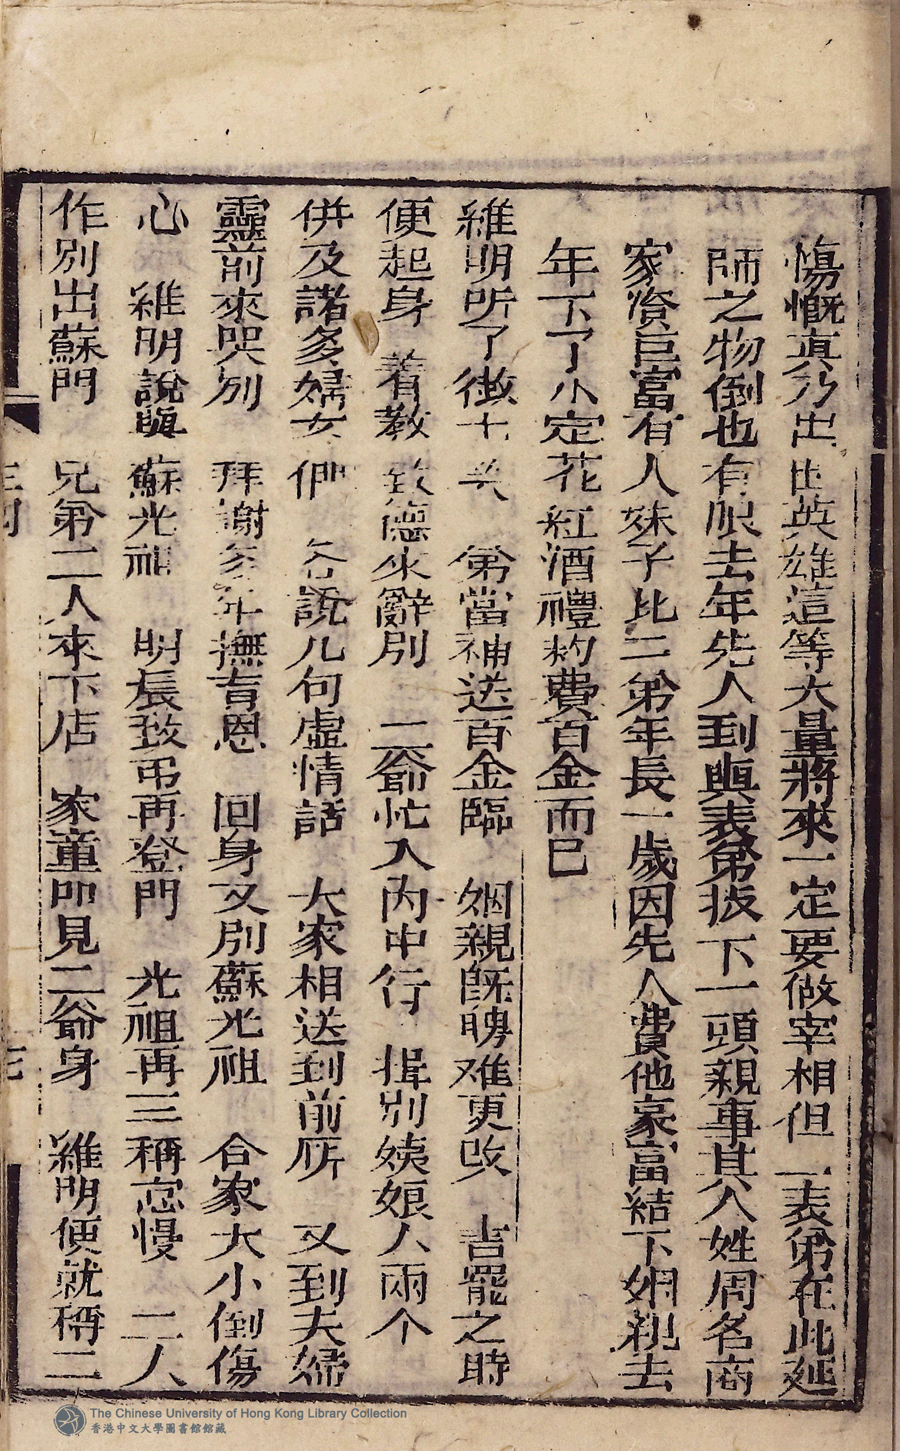 慯慨真乃出 出英雄這等大量將來一定要做宰相但 表弟在此延
師之物倒也有限去年先人到與表弟扳下一頭親事其人姓周名商
家資巨富有人妹子比二弟年長一歲因先人費他豪富結下姻親去
年下了小定花紅酒禮約費百金而已
維明听了微 第當補送百金臨 姻親旣聘难更改 言罷之時
便起身 着教 致德來辭別 二爺忙入內中行 揖別姨娘人兩个
併及諸多婦女們 各說几句虛情話 大家相送到前所 又到夫婦
靈前來哭別 拜謝多年撫育恩 回身又別蘇光祖 合家大小倒傷
心 維明說與蘇光祖 明辰致弔再登門 光祖再三稱怠慢 二人
作別出蘇門 兄弟二人來下店 家童叩見二爺身 維明便就稱二
The Chinese University of Hong Kong Library Collection
香港中文大學圖書館館藏